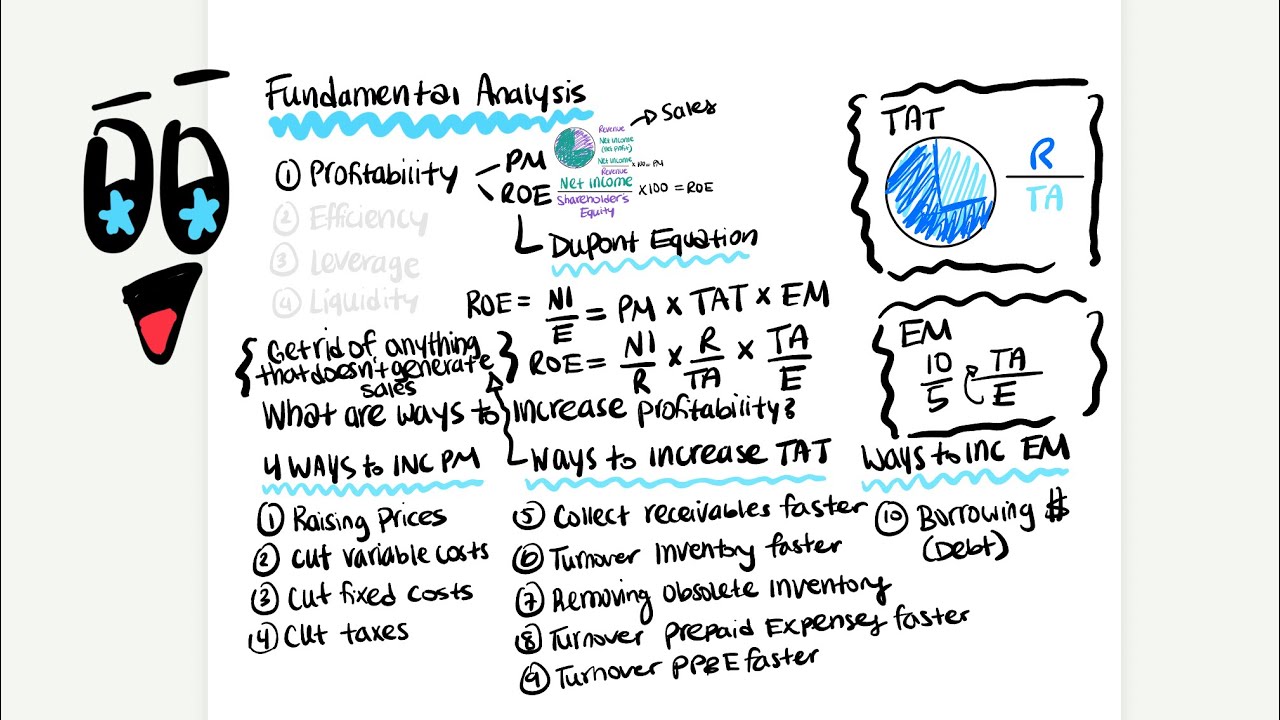 Fundamental Analysis
① Profitability
② Efficiency
③ Leverage
④ Liquidity
PM
Revenue
Net Income
(Net Profit)
Net Income
Revenue
x 100 = PM
Sales
ROE
Net Income
Shareholder's
Equity
x 100 = ROE
Dupont Equation
ROE = NI/E = PM x TAT x EM
ROE = NI/R x R/TA x TA/E
{Get rid of anything
that doesn't generate
sales}
What are ways to increase profitability?
TAT
R
TA
EM
10/5
TA/E
4 ways to INC PM
① Raising Prices
② Cut variable costs
③ Cut fixed costs
④ Cut taxes
Ways to increase TAT
⑤ Collect receivables faster
⑥ Turnover Inventory faster
⑦ Removing Obsolete Inventory
⑧ Turnover Prepaid Expenses faster
⑨ Turnover PP&E faster
Ways to INC EM
⑩ Borrowing $
(Debt)